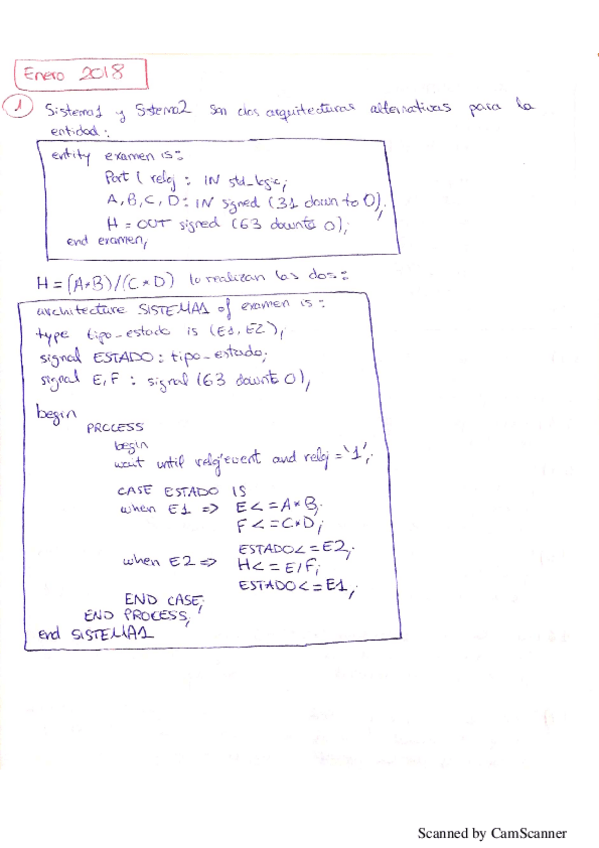 Enero 2018
1 Sistema1 y Sistema2 son dos arquitecturas alternativas para la
entidad:
entity examen is:
Port ( reloj : IN std_logic;
A, B, C, D : IN signed (31 down to 0);
H = OUT signed (63 downto 0);
end examen;
H = (A*B)/(C*D) lo realizan las dos:
architecture SISTEMA1 of examen is:
type tipo_estado is (E1, E2);
signal ESTADO : tipo_estado;
signal E, F : signal (63 downto 0);
begin
PROCESS
begin
wait until reloj'event and reloj = '1';
CASE ESTADO IS
when E1 => E <= A*B;
F <= C*D;
ESTADO <= E2;
when E2 => H <= E/F;
ESTADO <= E1;
END CASE;
END PROCESS;
end SISTEMA1
Scanned by CamScanner